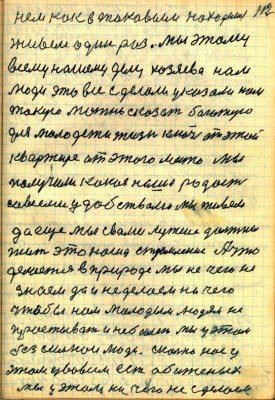 112
нем как в таковыим находим
живем один роз. Мы этому
всему нашему делу хозяева нам
люди это все сделали указали нам
такую можно сказат большую
для молодежи жизн ключ от этой
квартире от этого мы
получили какая наша радост
совсеми удобствами мы живем
да еще мы свами лучше должны
жит это наше стремление А что
делается в природе мы не чего не
знаем да и неделаем ни чего
чтобы нам молодым людям не
мы у этом
без силном люди. сколко нас у
этом ест обиженых
мы у этом ни чего не сделаем